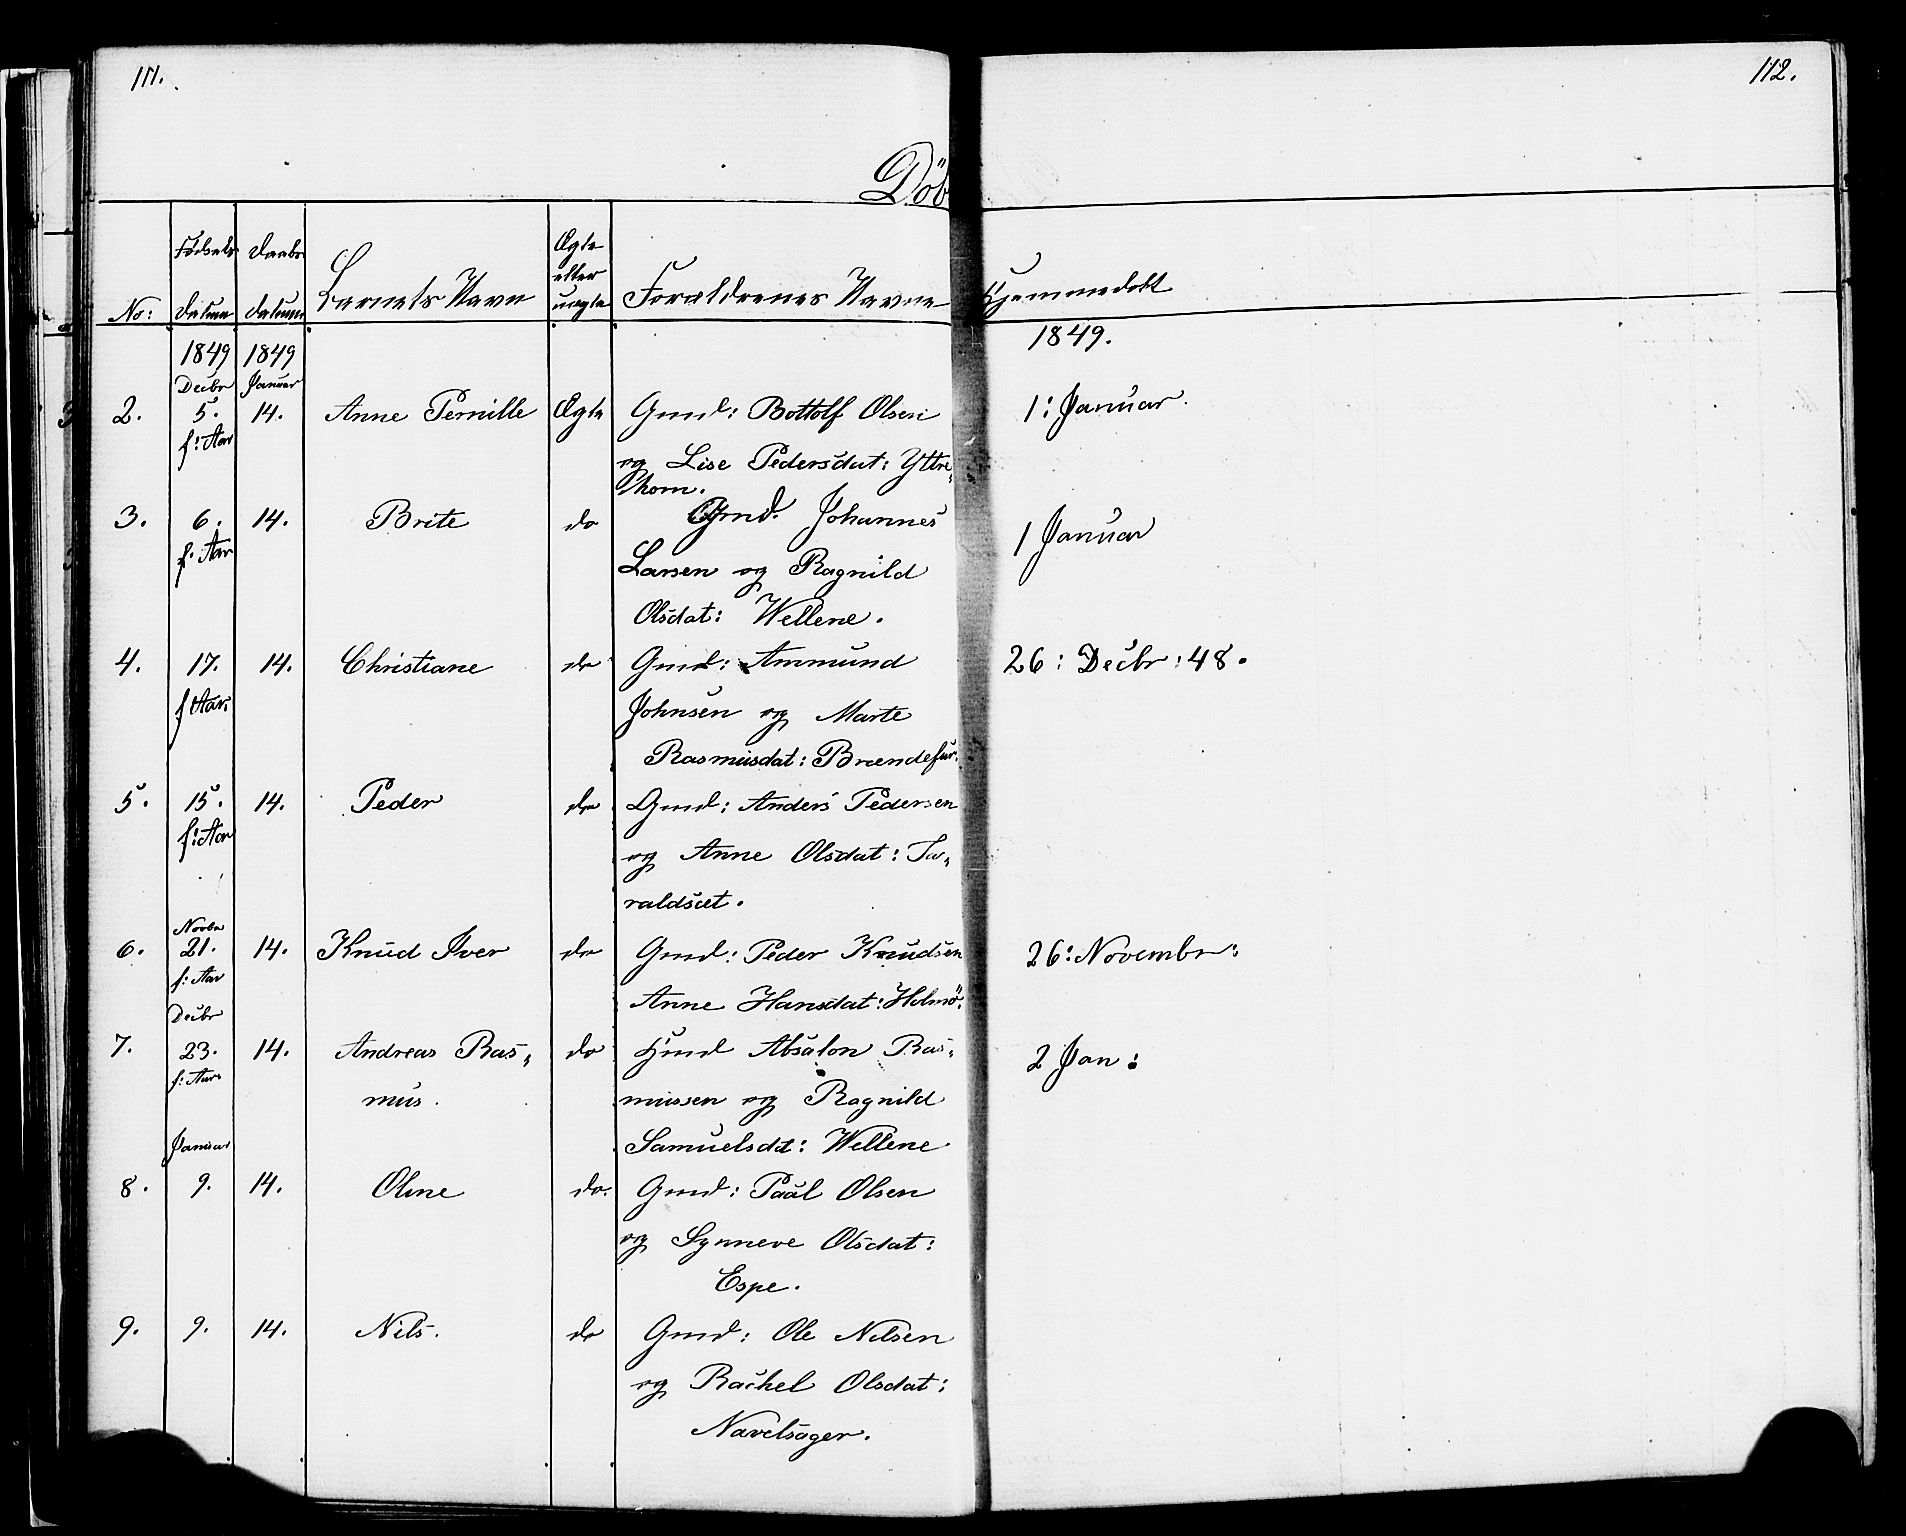 111.
112.
Döb
No:
Fødsels
Datum
Daabs
datum
Barnets Navn
Ægte
eller
uægte
Forældrenes Navne
Hjemmedøbt
1849 1849 1849.
Decbr Januar
2. 5. 14. Anne Pernille Ægte Gmd: Bottolf Olsen 1: Januar.
f: Aar
og Lise Pedersdat: Yttre-
horn.
3. 6. 14. Brite do Gmd. Johannes 1 Januar
f: Aar
Larsen og Ragnild
Olsdat: Wellene.
4. 17. 14. Christiane do Gmd: Ammund 26: Decbr: 48.
f Aar:
Johnsen og Marte
Rasmusdat: Brændefur.
5. 15. 14. Peder do Gmd: Anders Pedersen
f: Aar
og Anne Olsdat: Ta-
raldsæt.
Novbr
6. 21. 14. Knud Iver do Gmd: Peder Knudsen 26: Novembr:
f: Aar
Anne Hansdat: Holmö.
Decbr
7. 23. 14. Andreas Ras- do Hmd Absalon Ras- 2 Jan:
f: Aar
mus. mussen og Ragnild
Januar Samuelsdt: Wellene
8. 9. 14. Oline do. Gmd: Paul Olsen
og Synneve Olsdat:
Espe.
9. 9. 14. Nils. do Gmd: Ole Nilsen
og Rachel Olsdat:
Navelsager.